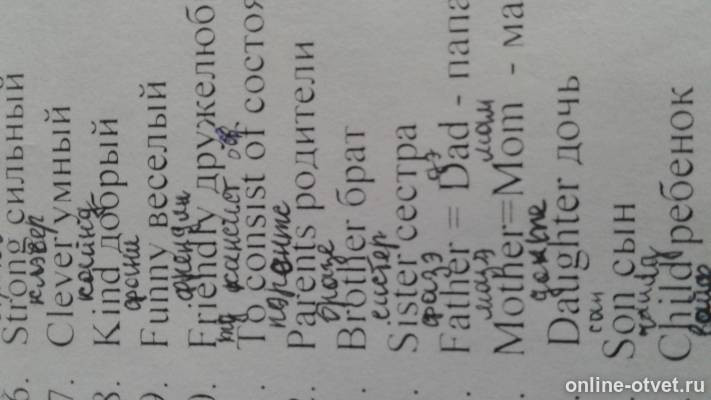 6. Strong сильный
клэвер
7. Clever умный
кайнд
8. Kind добрый
фани
9. Funny веселый
френдли
. Friendly дружелюб
ту кансист оф
. To consist of состоя
порентс
. Parents родители
брозе
. Brother брат
систер
. Sister сестра
фазэ дэд
. Father = Dad - папа
мазэ мам
. Mother=Mom - ма
. Daughter дочь
сан
. Son сын
чайлд
. Child ребенок
вайф
online-otvet.ru